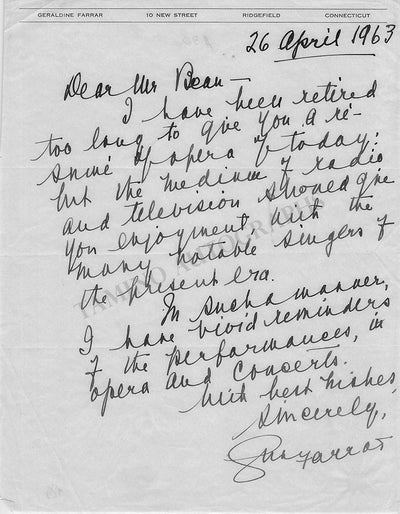 GERALDINE FARRAR 10 NEW STREET RIDGEFIELD CONNECTICUT
26 April 1963
Dear Mr Bean —
I have been retired
too long to give you a ré-
sumé of opera of today:
but the medium of radio
and television should give
you enjoyment with the
many notable singers of
the present era.
In such a manner,
I have vivid reminders
of the performances, in
opera and concerts.
With best wishes
Sincerely,
Farrar
TAMINO AUTOGRAPHS